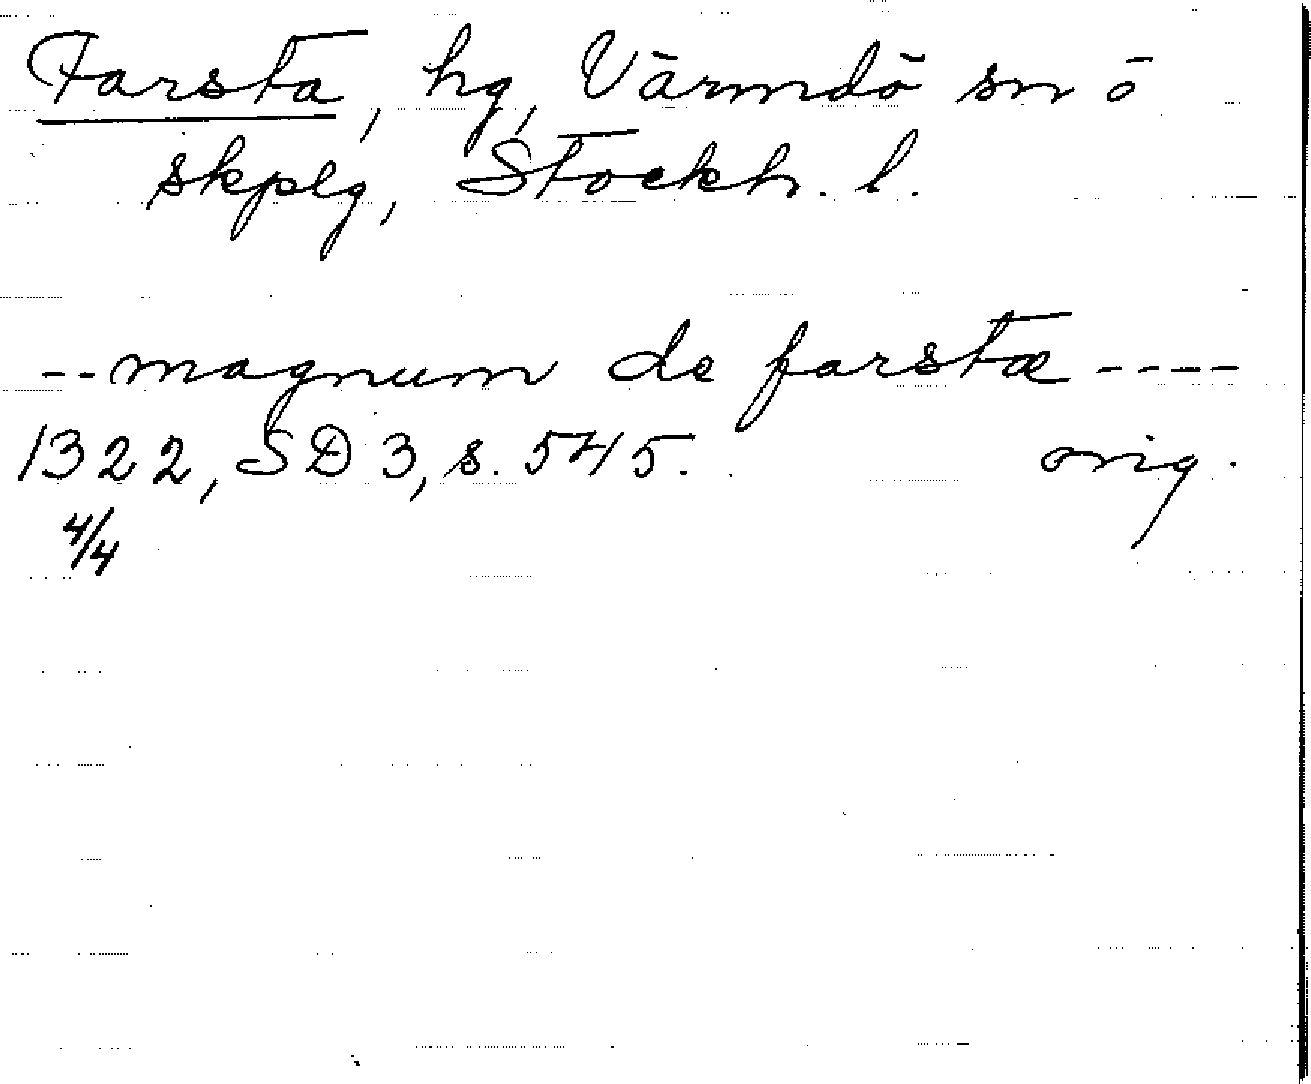 Farsta, hg, Värmdö sn o
skplg, Stockh. l.
-- magnum de farstæ ----
1322, SD 3, s. 545. orig.
4/4